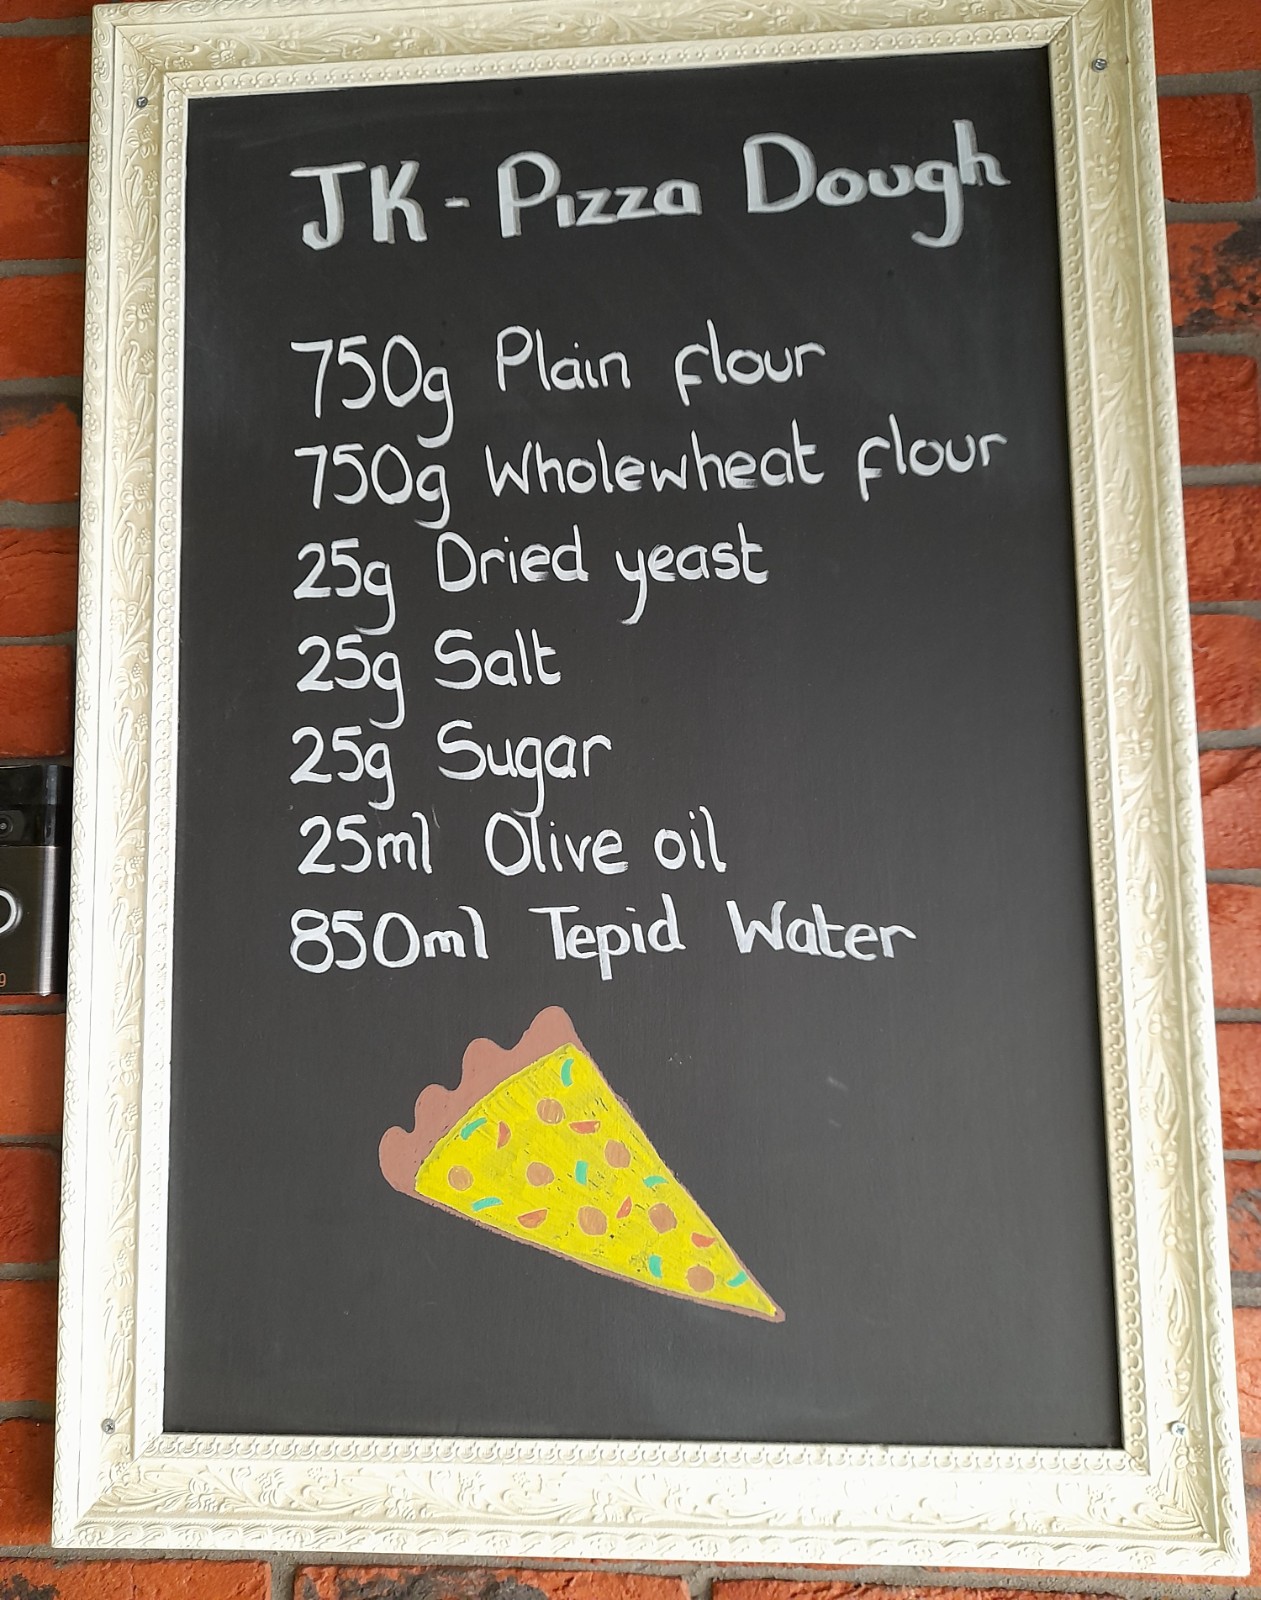 JK - Pizza Dough
750g Plain flour
750g Wholewheat flour
25g Dried yeast
25g Salt
25g Sugar
25ml Olive oil
850ml Tepid Water